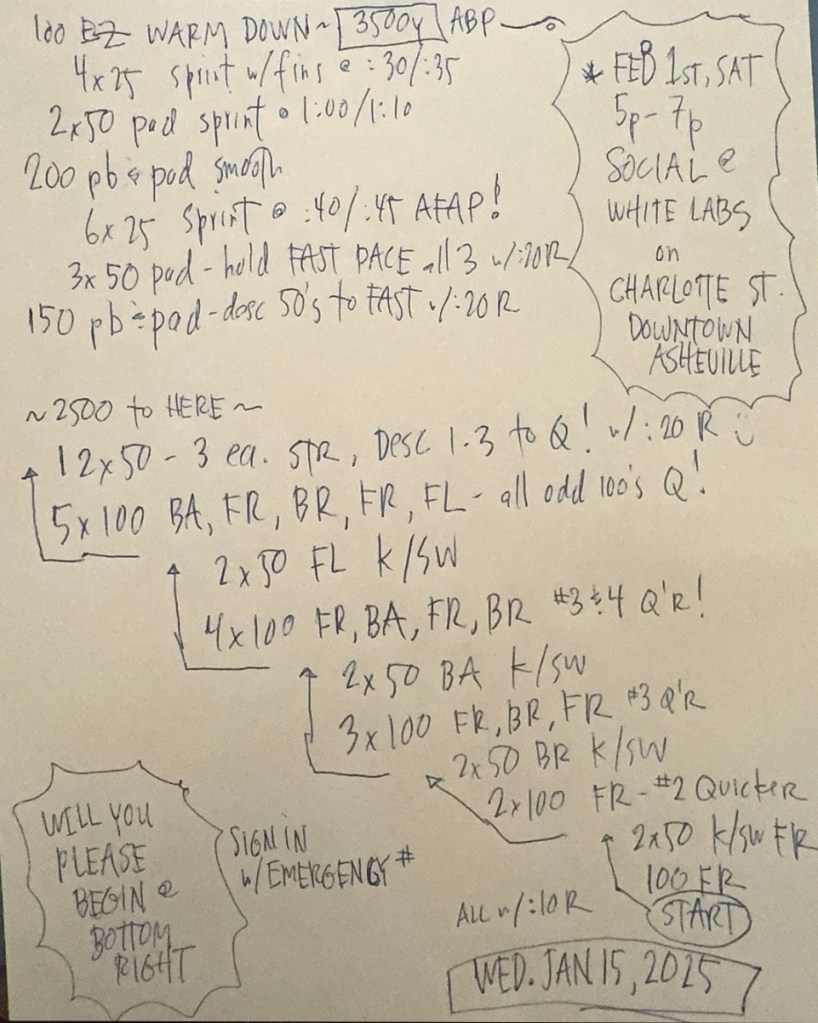 100 EZ WARM DOWN ~ 3500y ABP
4x25 sprint w/fins @ :30/:35
2x50 pad sprint @ 1:00/1:10
200 pb & pad smooth
6x25 Sprint @ :40/:45 AFAP!
3x50 pad - hold FAST PACE all 3 w/:20R
150 pb & pad - desc 50's to FAST w/:20R
* FEB 1ST, SAT
5p-7p
SOCIAL @
WHITE LABS
on
CHARLOTTE ST.
DOWNTOWN
ASHEVILLE
~2500 to HERE~
12x50 - 3 ea. STR, DESC 1-3 to Q! w/:20 R
5x100 BA, FR, BR, FR, FL - all odd 100's Q!
2x50 FL K/SW
4x100 FR, BA, FR, BR #3 & 4 Q'R!
2x50 BA K/SW
3x100 FR, BR, FR #3 Q'R
2x50 BR K/SW
2x100 FR - #2 QUICKER
2x50 K/SW FR
100 FR
START
ALL w/:10R
WILL YOU
PLEASE
BEGIN @
BOTTOM
RIGHT
SIGN IN
w/EMERGENCY #
WED. JAN 15, 2025